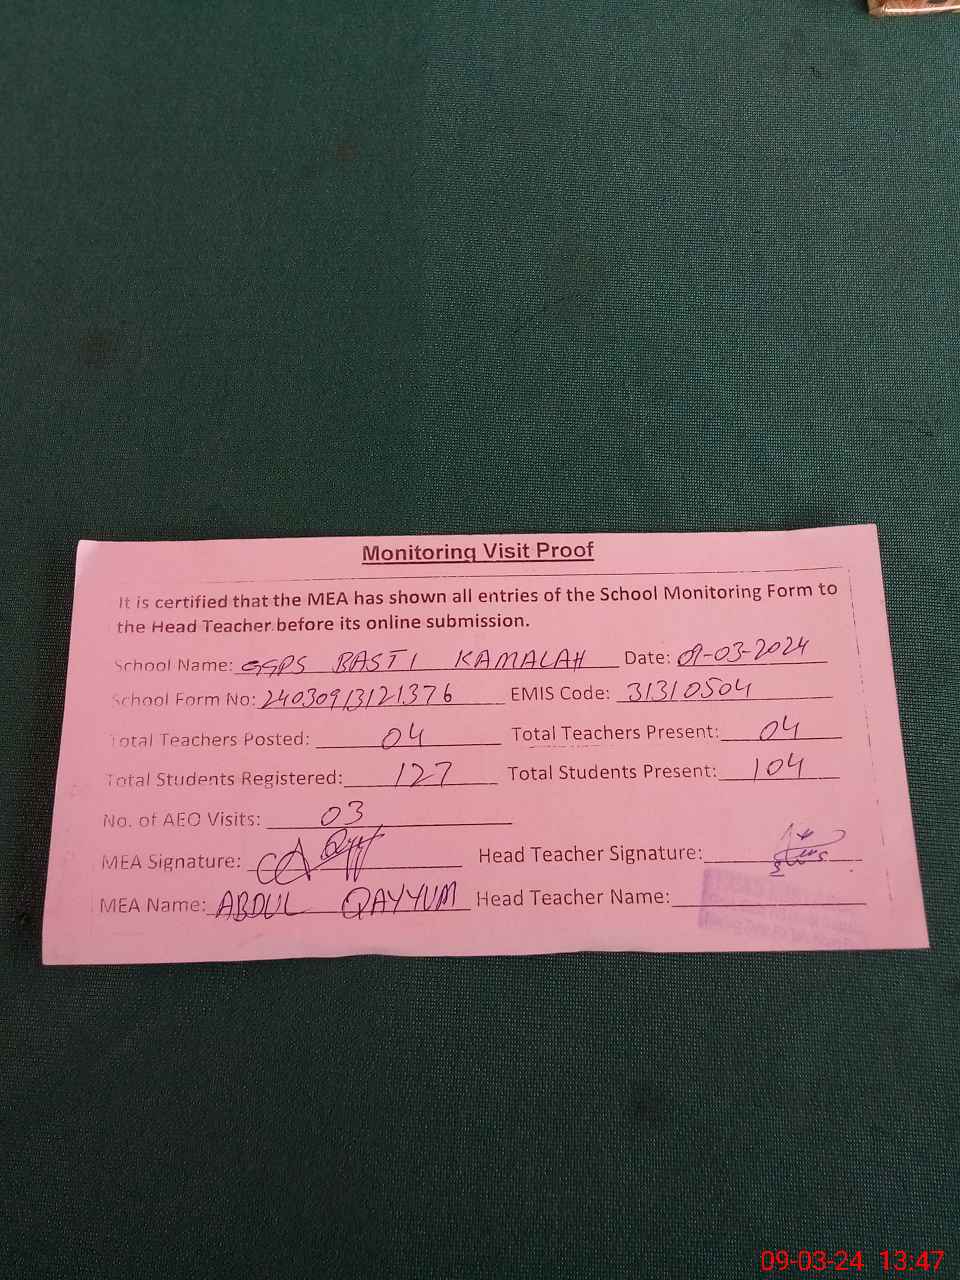 Monitoring Visit Proof
It is certified that the MEA has shown all entries of the School Monitoring Form to
the Head Teacher before its online submission.
School Name: GGPS BASTI KAMALAH Date: 09-03-2024
School Form No: 24030913121376 EMIS Code: 31310504
Total Teachers Posted: 04 Total Teachers Present: 04
Total Students Registered: 127 Total Students Present: 104
No. of AEO Visits: 03
MEA Signature: Head Teacher Signature:
MEA Name: ABDUL QAYYUM Head Teacher Name:
09-03-24 13:47